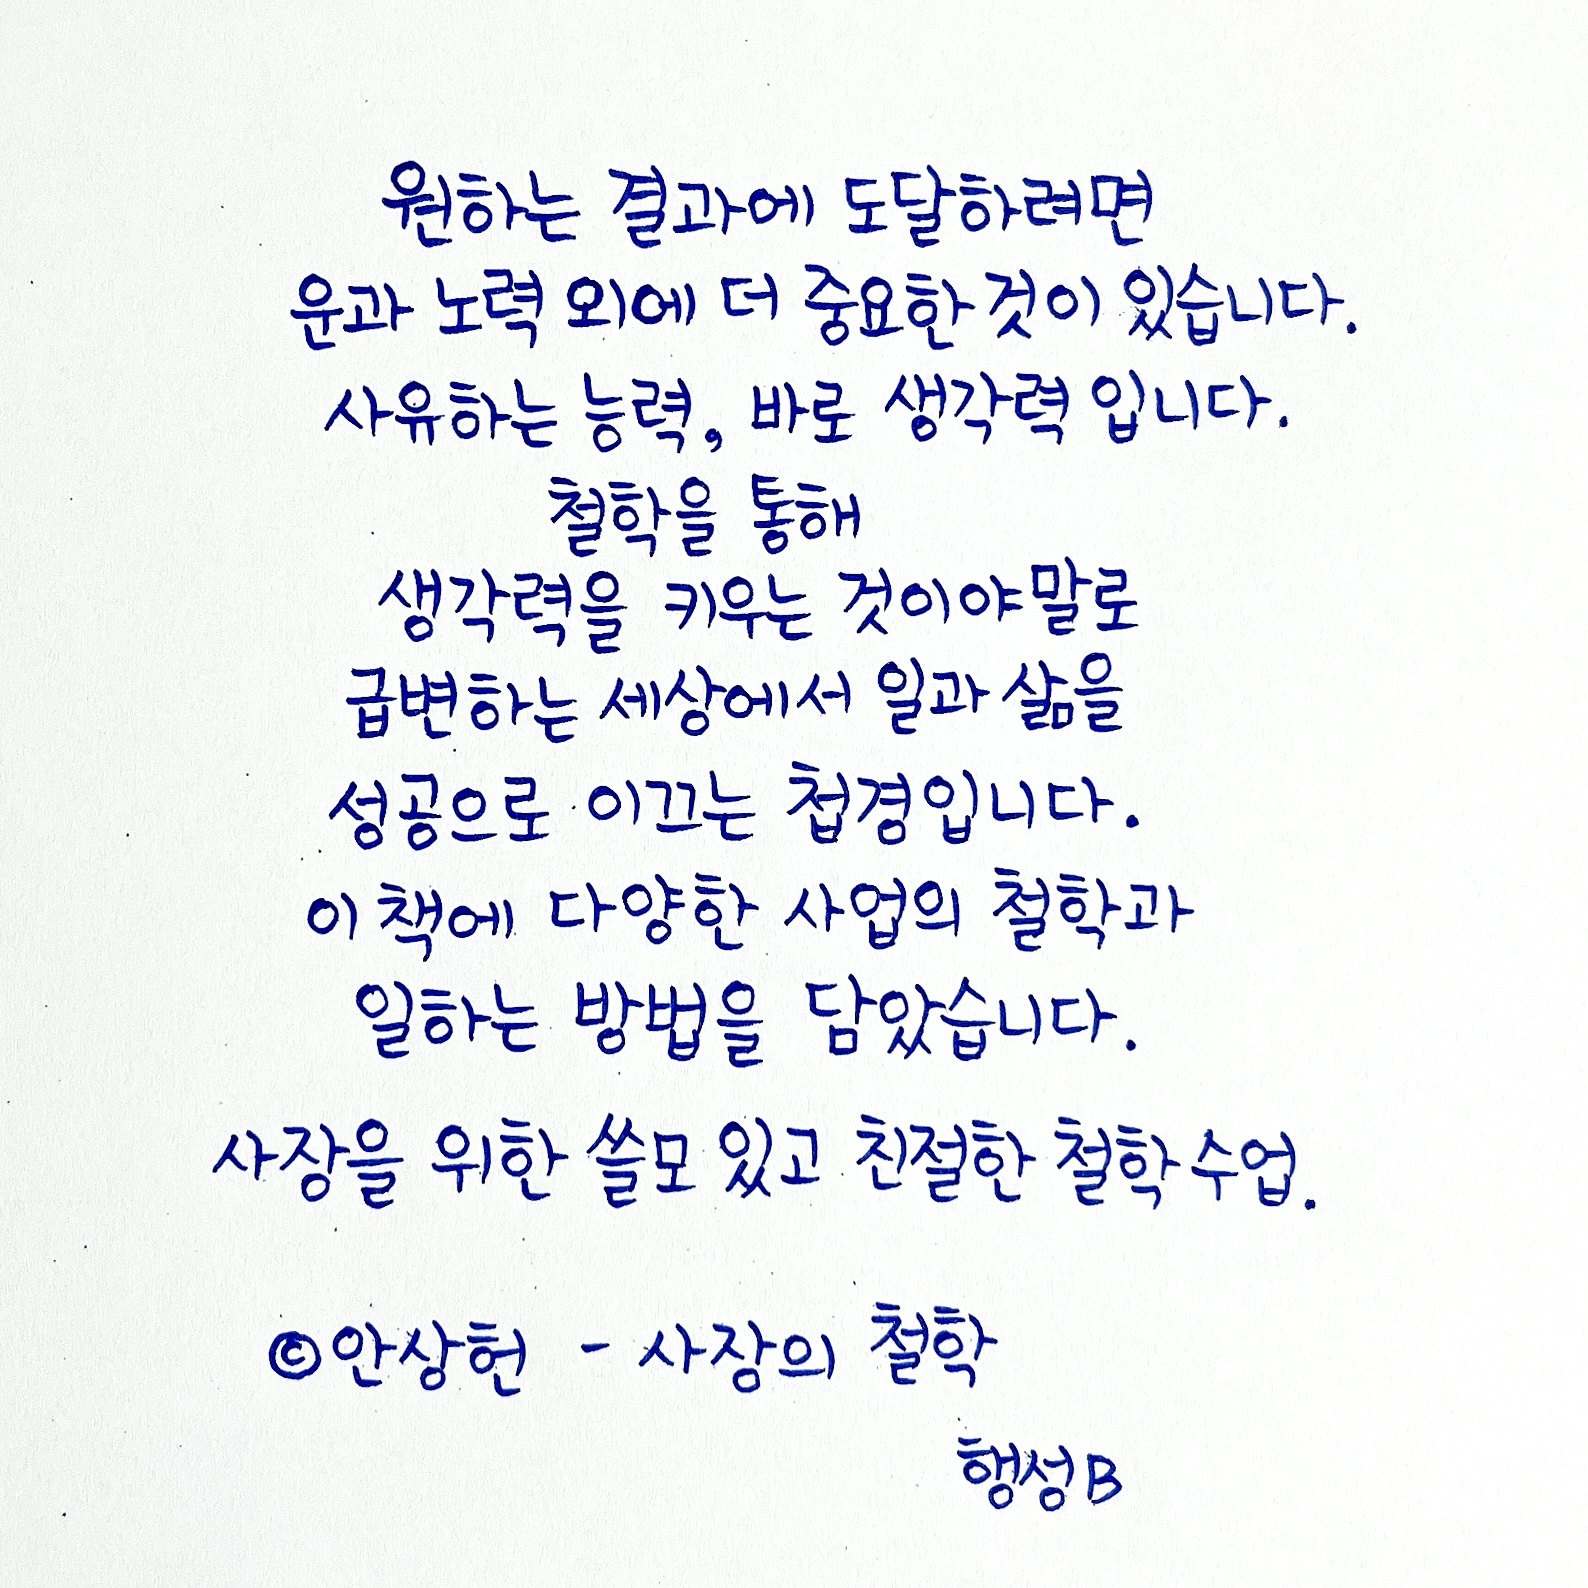 원하는 결과에 도달하려면
운과 노력 외에 더 중요한 것이 있습니다.
사유하는 능력, 바로 생각력입니다.
철학을 통해
생각력을 키우는 것이야말로
급변하는 세상에서 일과 삶을
성공으로 이끄는 첩경입니다.
이 책에 다양한 사업의 철학과
일하는 방법을 담았습니다.
사장을 위한 쓸모 있고 친절한 철학 수업.
©안상헌 - 사장의 철학
행성B